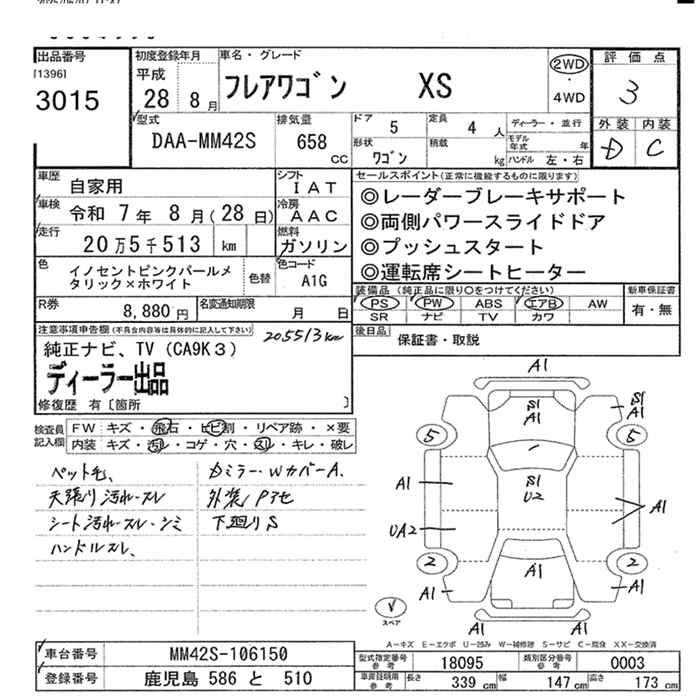 出品番号
[1396]
3015
初度登録年月
平成
28 8月
車名・グレード
フレアワゴン XS
2WD
・
4WD
評価点
3
外装 内装
D C
型式
DAA-MM42S
排気量
658
CC
ドア 5
定員 4 人
形状
ワゴン
積載
kg
ディーラー・並行
モデル年式 年
ハンドル 左・右
車歴
自家用
シフト
IAT
車検
令和 7年 8月(28日)
冷房
AAC
走行
20万5千513 km
燃料
ガソリン
色
イノセントピンクパールメ
タリック×ホワイト
色替
色コード
A1G
R券
8,880 円
名変通知期限
月 日
セールスポイント(正常に機能するものに限ります)
◎レーダーブレーキサポート
◎両側パワースライドドア
◎プッシュスタート
◎運転席シートヒーター
装備品(純正品に限り○をつけてください)
PS PW ABS エアB AW
SR ナビ TV カワ
新車保証書
有・無
後日品
保証書・取説
注意事項申告欄(不具合内容等は具体的に記入して下さい)
205513km
純正ナビ、TV(CA9K3)
ディーラー出品
修復歴 有〔箇所 〕
検査員
記入欄
FW キズ・飛石・ヒビ割・リペア跡・×要
内装 キズ・汚レ・コゲ・穴・スレ・キレ・破レ
ペット毛、
天張り汚れ・スレ
シート汚れ・スレ・シミ
ハンドルスレ、
カミラー・WカバーA.
外装Pアセ
下廻りS
A1
S1
A1
S1
A1
5
5
A1
S1
U2
A1
UA2
2
2
A1
A1
A1
A1
A1
スペア
A－キズ E－エクボ U－凹み W－補修跡 S－サビ C－腐食 XX－交換済
車台番号
MM42S-106150
登録番号
鹿児島 586 と 510
型式指定番号
参考
18095
類別区分番号
参考
0003
車庫証明用
参考
長さ 339 cm
幅 147 cm
高さ 173 cm